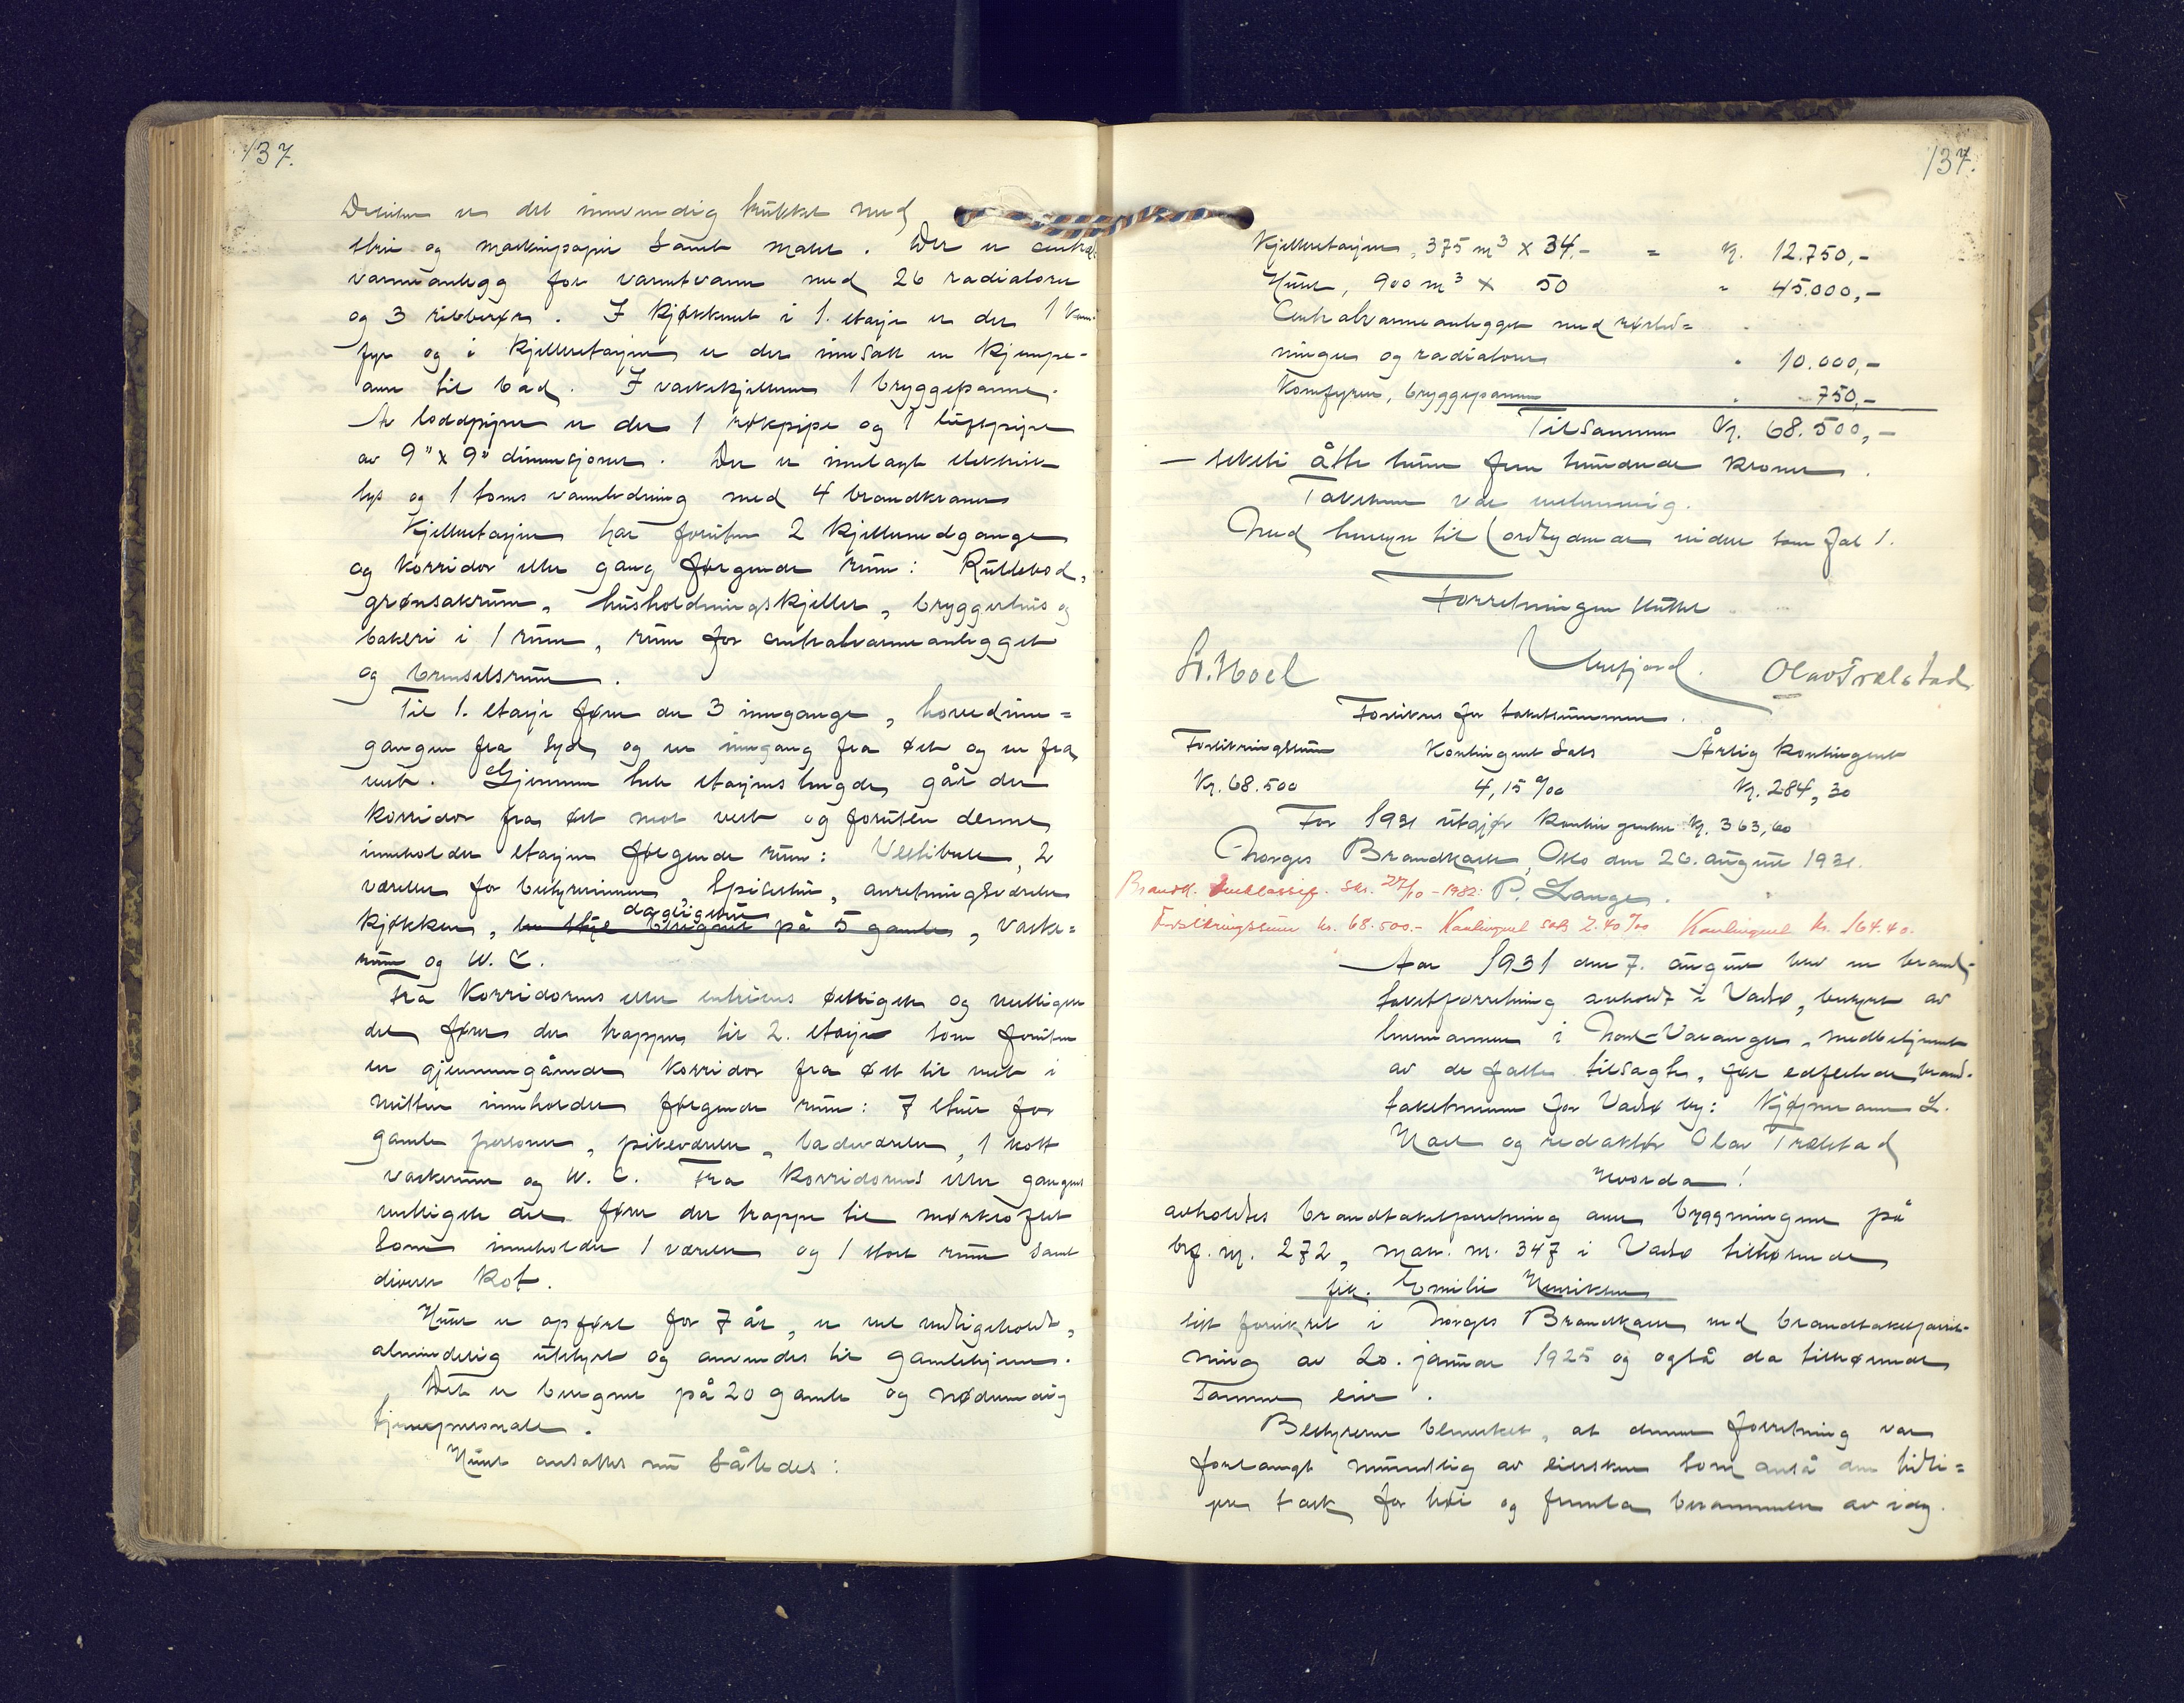 137.
Desuten er det innvendig trukket med
strie og maskinpapir samt malt. Der er central
varmeanlegg for varmtvann med 26 radiatorer
og 3 ribberør. I kjøkkenet i 1. etasje er der 1 kom
fyr og i kjelleretasjen er der innsatt en kjempe-
ovn til bad. I vaskekjelleren 1 bryggepanne.
Av loddpiper er der 1 røkpipe og 1 luftpipe
av 9" x 9" dimensjoner. Der er innlagt elektrisk
lys og 1 toms vannledning med 4 brandkraner
Kjelleretasjen har foruten 2 kjellernedgange
og korridor eller gang følgende rum: Rullebod,
grønsakrum, husholdningskjeller, bryggerhus og
bakeri i 1 rum, rum for centralvarmeanlegget
og brenselsrum.
Til 1. etasje fører der 3 innganger, hovedinn=
gangen fra syd og en inngang fra øst og en fra
vest. Gjennem hele etasjens lengde går der
korridor fra øst mot vest og foruten denne
inneholder etasjen følgende rum: Vestibule, 2
værelser for bestyrerinnen, spisestue, anretningsværelse
dagligstue
kjøkken, beregnet på 5 gamle, vaske=
rum og W. C.
Fra korridorens eller østligste og vestligste
del fører der trapper til 2. etasje som foruten
en gjennemgående korridor fra øst til vest i
midten inneholder følgende rum: 7 stuer for
gamle personer, pikeværelse, badeværelse, 1 kott
vaskerum og W. C. Fra korridorens eller gangens
vestligste del fører der trappe til mørkloftet
som inneholder 1 værelse og 1 stort rum samt
diverse kot.
Huset er opført for 7 år, er vel vedligeholdt,
almindelig utstyrt og anvendes til gamlehjem.
Det er beregnet på 20 gamle og nødvendig
tjenerpersonale.
Huset ansattes nu således:
137.
Kjelleretasjen, 375 m³ x 34,- = Kr. 12.750,-
Huset, 900 m³ x 50 " 45.000,-
Centralvarmeanlegget med rørled=
ninger og radiatorer " 10.000,-
Komfyren, bryggepannen " 750,-
Tilsammen Kr. 68.500,-
— seksti åtte tusen fem hundrede kroner.
Taksten var enstemmig.
Med hensyn til (ordlydende videre som fol 1.
Forretningen sluttet
L. Noel Olav Trælstad
Forsikres for takstsummen.
Forsikringssum Kontingent sats Årlig kontingent
Kr. 68.500 4,15 ‰ Kr. 284,30
For 1931 utgjør kontingenten Kr. 363,60
Norges Brandkasse, Oslo den 26. august 1931.
Brandk. omklassif. skr. 27/10-1932: P. Lange.
Forsikringssum kr. 68.500.- Kontingent sats 2.40 ‰ Kontingent kr. 164.40.
Aar 1931 den 7. august blev en brand-
takstforretning avholdt i Vadsø, bestyret av
lensmannen i Nord-Varanger, medbetjent
av de faste tilsagte, før edfestede brand-
takstmenn for Vadsø by: Kjøpmann L.
Noel og redaktør Olav Trælstad
Hvorda!
avholdtes brandtakstforretning over bygningene på
brf. nr. 272, matr. nr. 347 i Vadsø tilhørende
frk. Emilie Henriksen
sist forsikret i Norges Brandkasse ved brandtakstforret-
ning av 20. januar 1925 og også da tilhørende
samme eier.
Bestyreren bemerket, at denne forretning var
forlangt mundtlig av eiersken som anså den tidli=
gere takst for høi og fremla berammelse av idag.